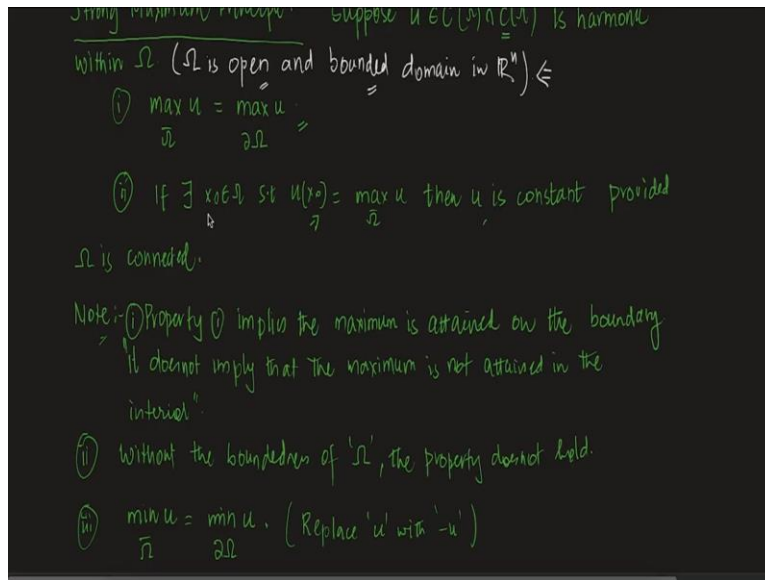 Strong Maximum Principle:- Suppose u ∈ C²(Ω) ∩ C(Ω̄) is harmonic
within Ω (Ω is open and bounded domain in ℝⁿ) ⇐
(i) max u = max u.
Ω̄ ∂Ω
(ii) If ∃ x₀∈Ω s.t u(x₀) = max u then u is constant provided
Ω̄
Ω is connected.
Note:- (i) Property (i) implies the maximum is attained on the boundary
"It doesnot imply that the maximum is not attained in the
interior".
(ii) Without the boundedness of 'Ω', the property doesnot hold.
(iii) min u = min u. (Replace 'u' with '-u')
Ω̄ ∂Ω